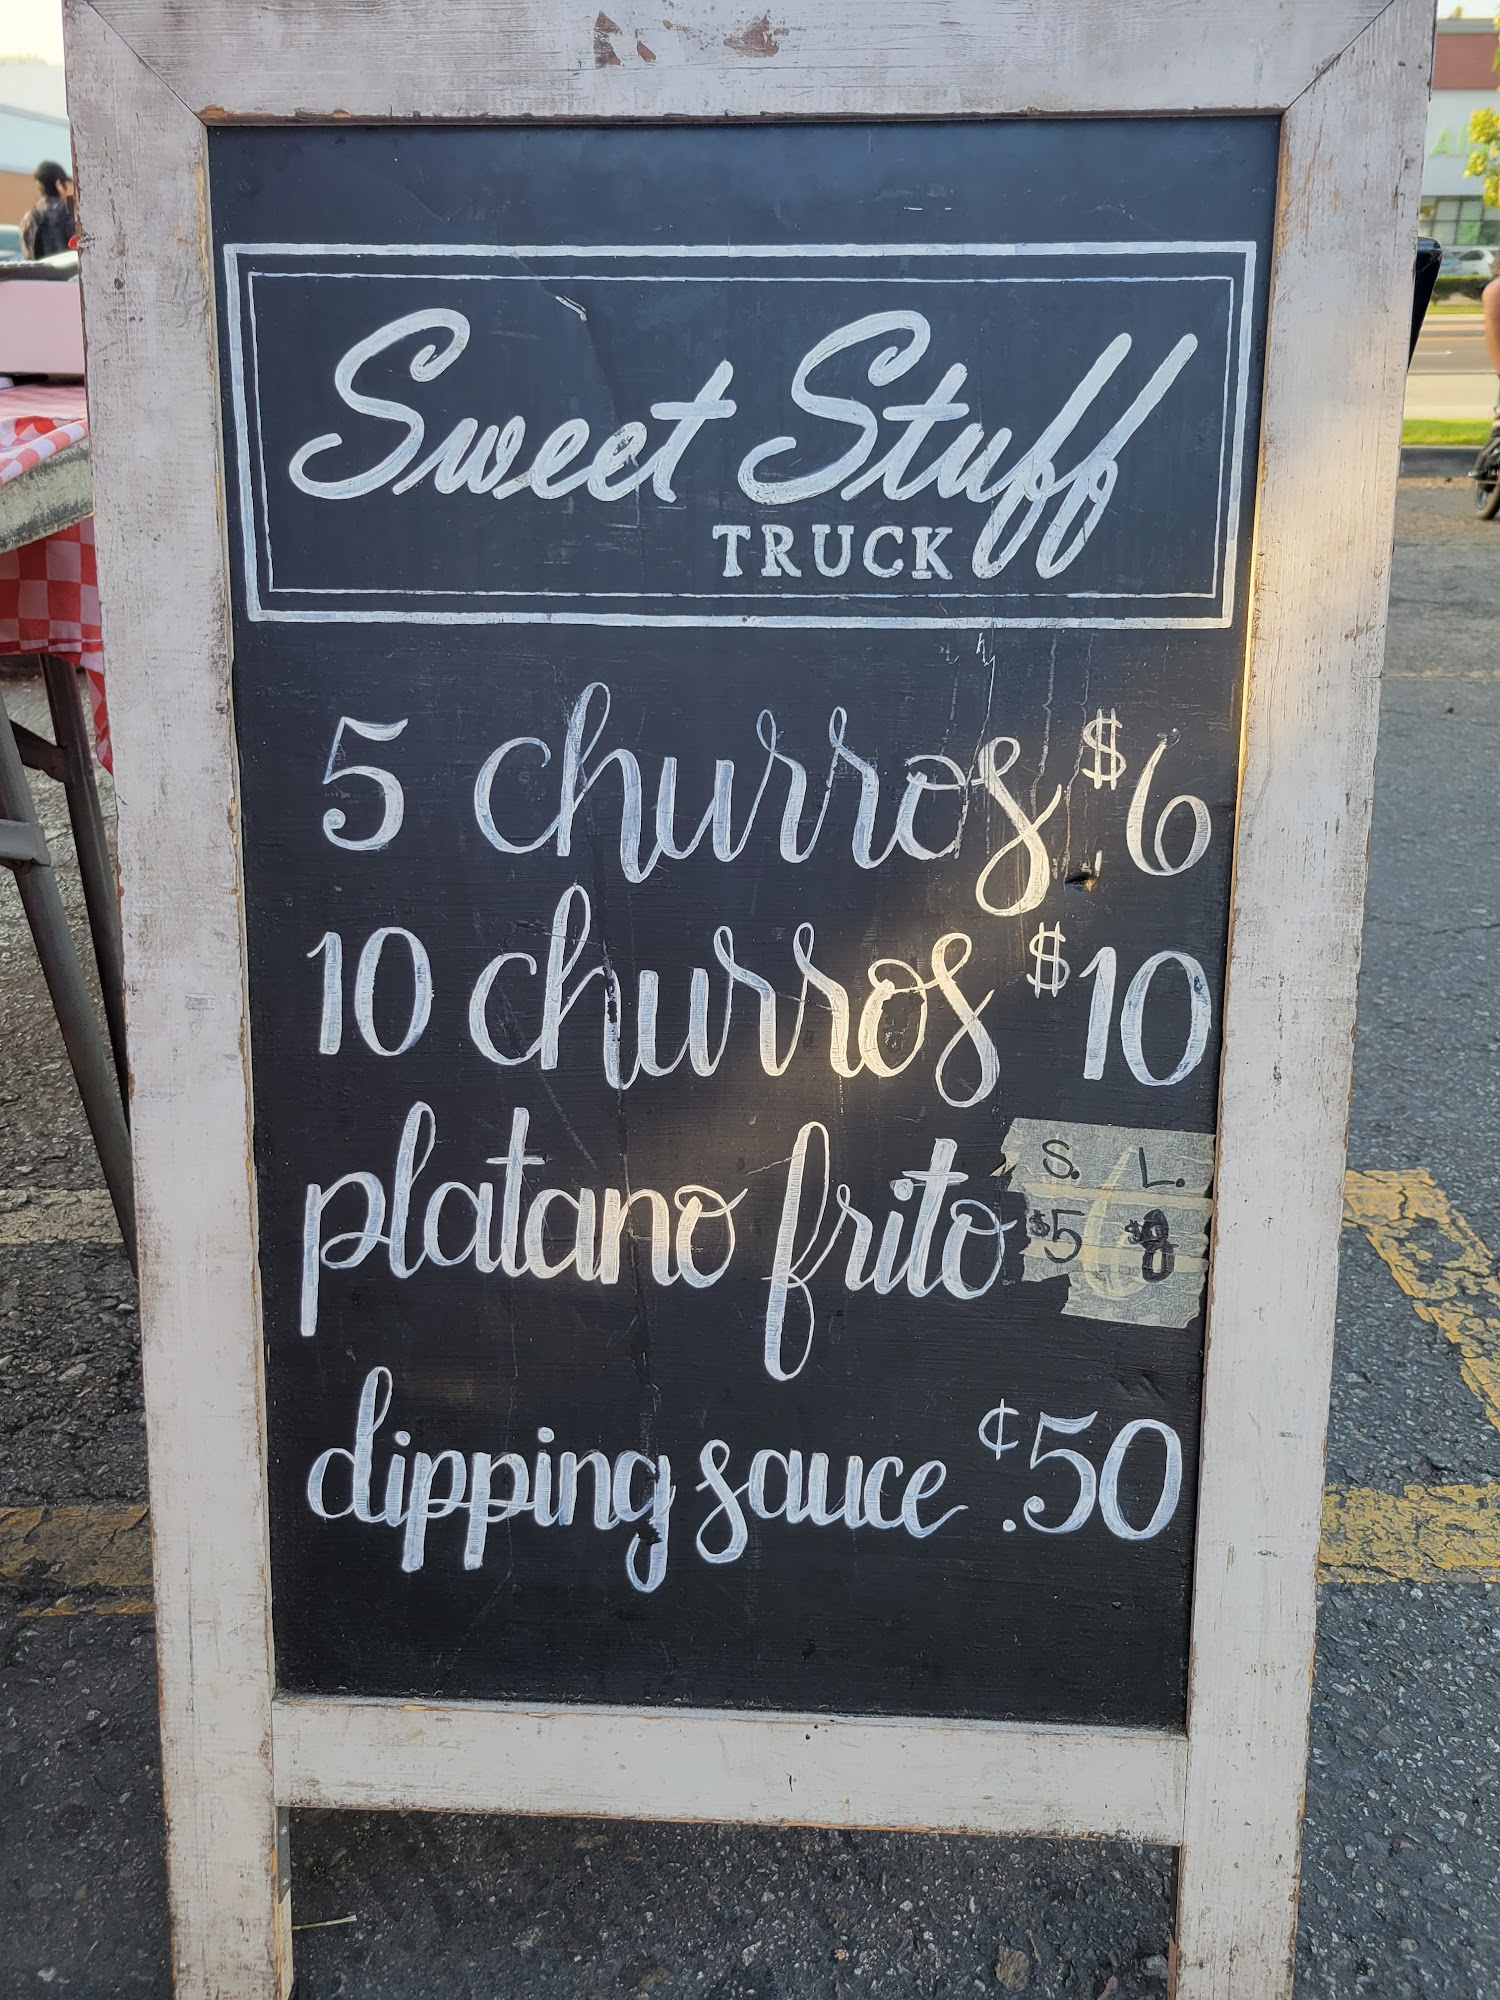 Sweet Stuff
TRUCK
5 churros $6
10 churros $10
platano frito S. L.
$5 $8
dipping sauce ¢.50